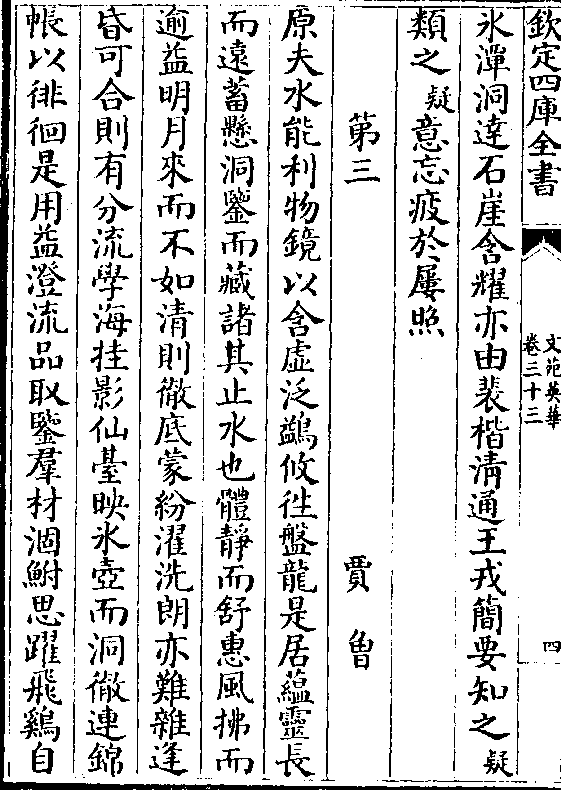 欽定四庫全書
文苑英華
卷三十三
四
氷渾洞達石崖含耀亦由裴楷淸通王戎簡要知之疑
類之疑意忘疲於屢照
第三
賈曾
原夫水能利物鏡以含虛泛鷁攸往盤龍是居蘊靈長
而遠蓄懸洞鑒而藏諸其止水也體靜而舒惠風拂而
逾益明月來而不如清則徹底蒙紛濯洗朗亦難雜逢
昏可合則有分流學海挂影仙臺映氷壺而洞徹連錦
帳以徘徊是用益澄流品取鑒羣材涸鮒思躍飛鷄自